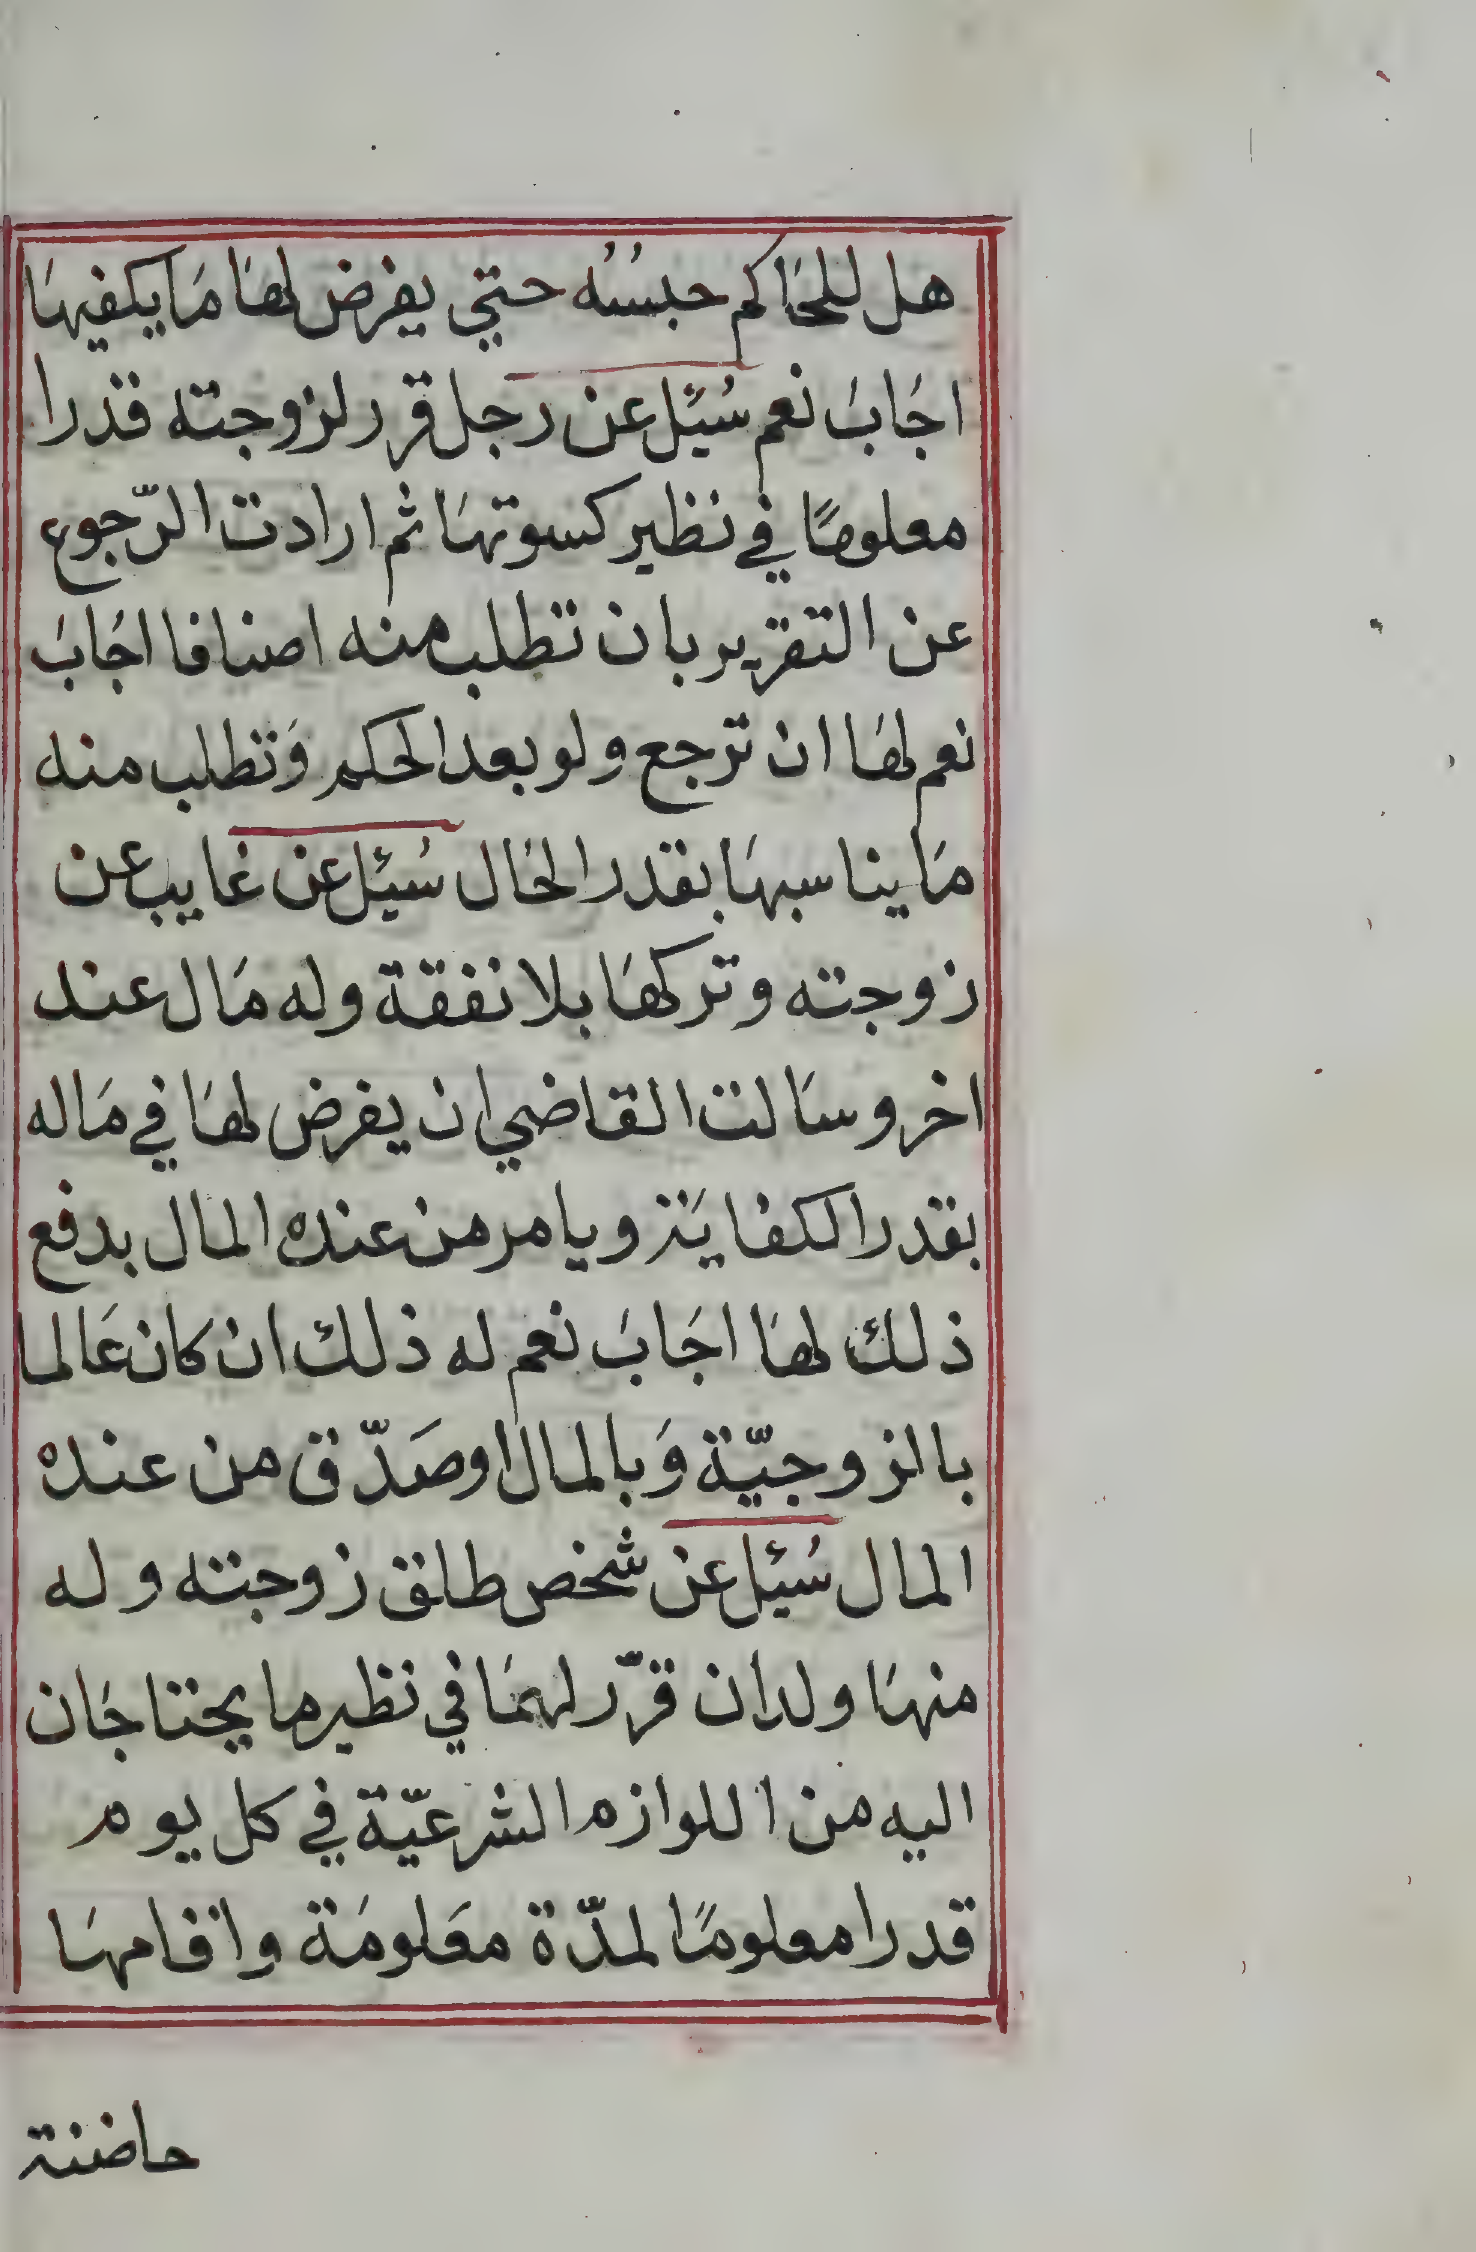 هل للحَاكم حبسُه حتي يفرض لهَا مَا يكفيهَا
اجَابَ نعم سُئِل عن رجل قرر لزوجته قدرا
معلومًا في نظير كسوتهَا ثم ارادت الرّجوع
عن التقرير بان تطلب منه اصنافا اجَابَ
نعم لهَا ان ترجع ولو بعد الحكم وَتطلب منه
مَا يناسبهَا بقدر الحَال سُئِل عن غايب عن
زوجته وتركهَا بلا نفقة وله مَال عند
اخر وسَالت القاضي ان يفرض لهَا في مَاله
بقدر الكفايَة ويامر من عنده المال بدفع
ذلك لهَا اجَابَ نعم له ذلك ان كان عَالما
بالزوجيّة وَبالمال اوصَدّق من عنده
المال سُئِل عن شخص طلق زوجته وله
منهَا ولدان قرّر لهمَا في نظير ما يحتاجَان
اليه من اللوازم الشرعيّة في كل يوم
قدرا معلومًا لمدّة معَلومَة واقامهَا
حاضنة